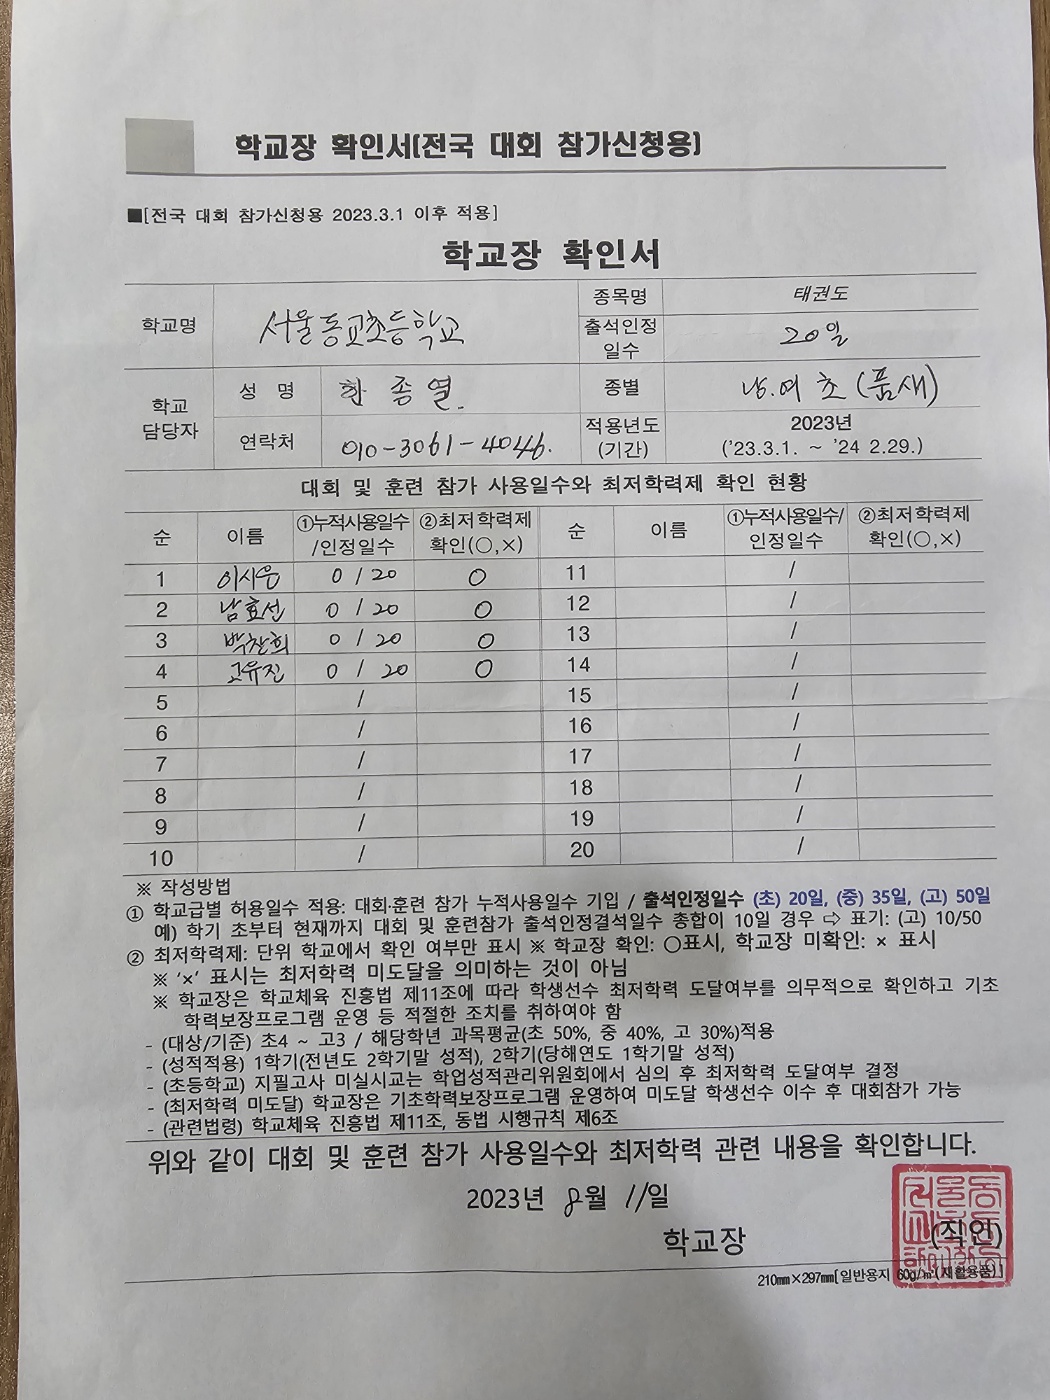 학교장 확인서(전국 대회 참가신청용)
■[전국 대회 참가신청용 2023.3.1 이후 적용]
학교장 확인서
학교명 서울동교초등학교 종목명 태권도
출석인정 일수 20일
학교 담당자 성 명 한종열. 종별 남.여 초 (품새)
연락처 010-3061-4046. 적용년도 (기간) 2023년 ('23.3.1. ~ '24 2.29.)
대회 및 훈련 참가 사용일수와 최저학력제 확인 현황
순 이름 ①누적사용일수/인정일수 ②최저학력제 확인(○,×) 순 이름 ①누적사용일수/인정일수 ②최저학력제 확인(○,×)
1 이시은 0 / 20 ○ 11 /
2 남효선 0 / 20 ○ 12 /
3 박찬희 0 / 20 ○ 13 /
4 고유진 0 / 20 ○ 14 /
5 / 15 /
6 / 16 /
7 / 17 /
8 / 18 /
9 / 19 /
10 / 20 /
※ 작성방법
① 학교급별 허용일수 적용: 대회·훈련 참가 누적사용일수 기입 / 출석인정일수 (초) 20일, (중) 35일, (고) 50일
예) 학기 초부터 현재까지 대회 및 훈련참가 출석인정결석일수 총합이 10일 경우 ⇨ 표기: (고) 10/50
② 최저학력제: 단위 학교에서 확인 여부만 표시 ※ 학교장 확인: ○표시, 학교장 미확인: × 표시
※ '×' 표시는 최저학력 미도달을 의미하는 것이 아님
※ 학교장은 학교체육 진흥법 제11조에 따라 학생선수 최저학력 도달여부를 의무적으로 확인하고 기초
학력보장프로그램 운영 등 적절한 조치를 취하여야 함
- (대상/기준) 초4 ~ 고3 / 해당학년 과목평균(초 50%, 중 40%, 고 30%)적용
- (성적적용) 1학기(전년도 2학기말 성적), 2학기(당해연도 1학기말 성적)
- (초등학교) 지필고사 미실시교는 학업성적관리위원회에서 심의 후 최저학력 도달여부 결정
- (최저학력 미도달) 학교장은 기초학력보장프로그램 운영하여 미도달 학생선수 이수 후 대회참가 가능
- (관련법령) 학교체육 진흥법 제11조, 동법 시행규칙 제6조
위와 같이 대회 및 훈련 참가 사용일수와 최저학력 관련 내용을 확인합니다.
2023년 8월 11일
학교장 (직인)
210㎜×297㎜[일반용지 60g/㎡(재활용품)]